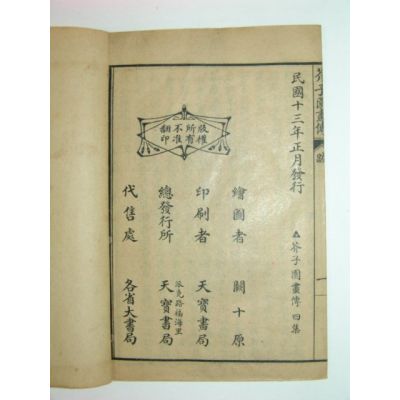 芥子園畫傳
民國十三年正月發行
▲芥子園畫傳四集
版權
所有
不准
翻印
繪圖者 關十原
印刷者 天寶書局
總發行所 派克路福海里 天寶書局
代售處 各省大書局